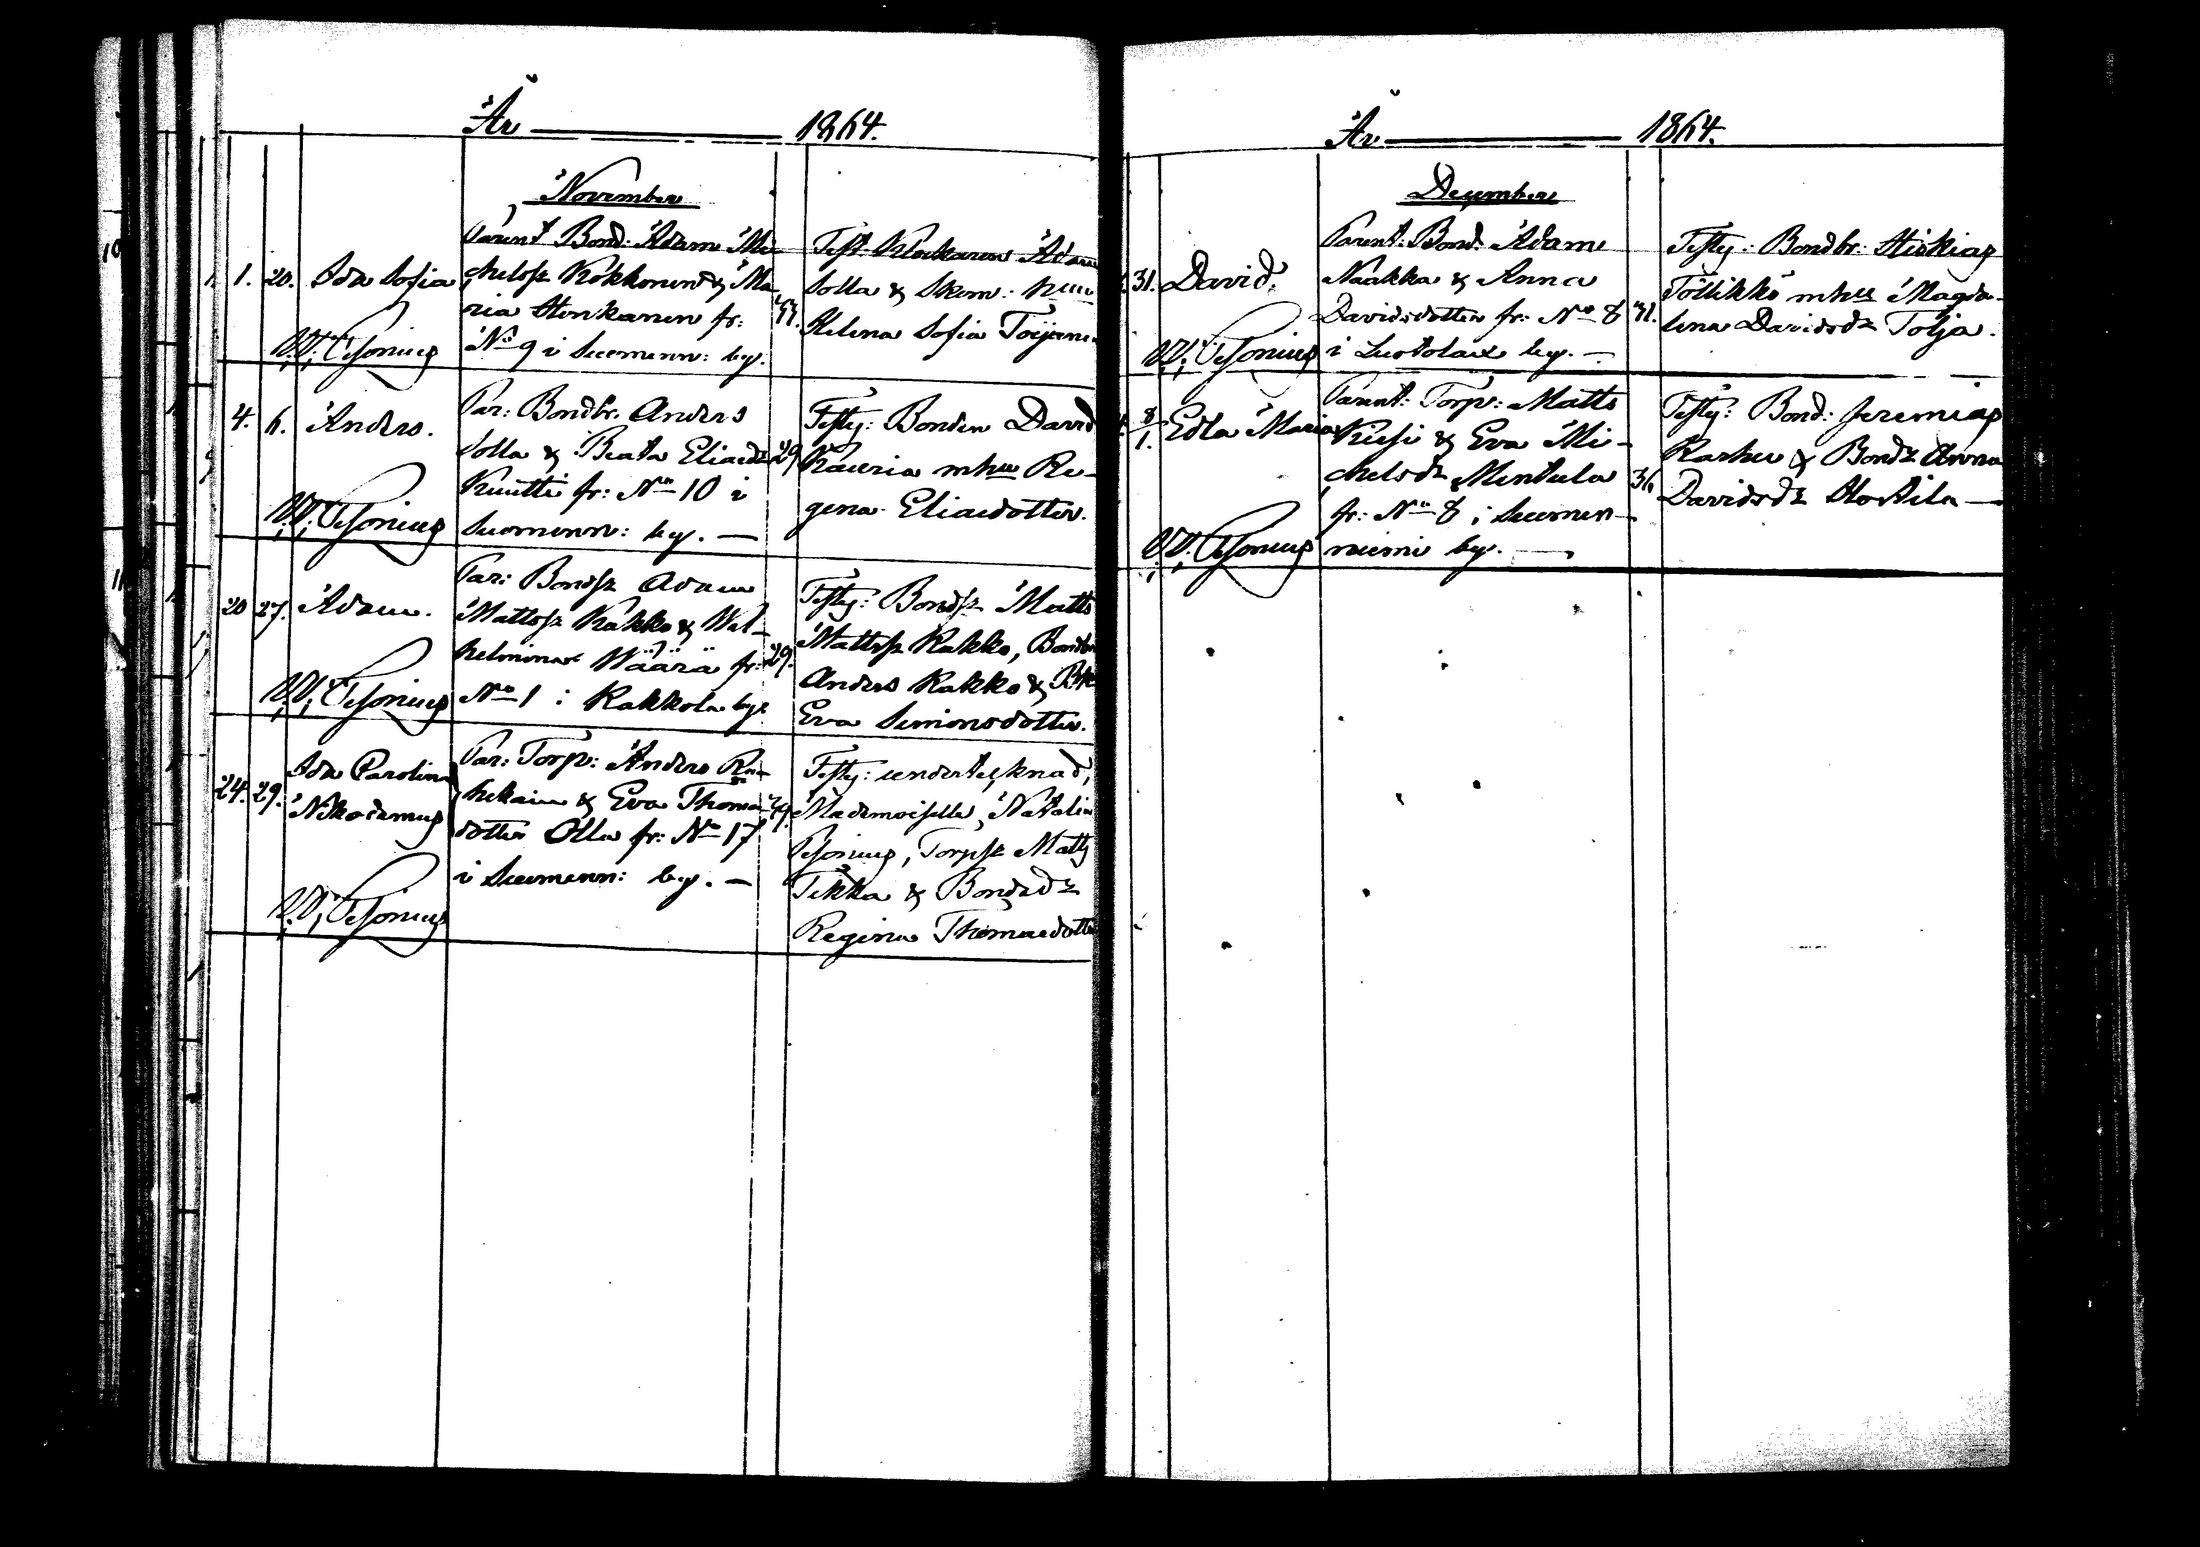 År 1864.
November
1. 20. Ida Sofia
Parent Bond: Adam Mi-
chelsz Kokkonen & Ma-
ria Honkanen fr:
No 9 i Suomenn: by.
33.
Test. Klockaren Adam
Solla & Skem:
Helena Sofia
V. V. Pesonius
4. 6. Anders.
Par: Bondbr. Anders
Solla & Beata Eliaedr
Knutti fr: No 10 i
Suomenn: by.
29
Testes: Bonden David
Kauria mhu Re-
gina Eliaedotter.
V. V. Pesonius
20 27. Adam.
Par: Bondsz Adam
Mattsz Kakko & Wil-
helmina Wäärä fr:
No 1 i Kakkola by.
29.
Testes: Bondsz Matts
Mattsz Kakko, Bondbr
Anders Kakko &
Eva Simonsdotter.
V. V. Pesonius
24. 29. Ida Carolina
Nikodemus
Par: Torp: Anders
& Eva Thomae
dotter Olla fr: No 17
i Suomenn: by.
Testes: undertecknad,
Mademoiselle Natalia
Pesonius, Torpsz Matts
Tikka & Bondedr
Regina Thomaedotter
V. V. Pesonius
År 1864.
December
31. David.
Parent: Bond: Adam
Naakka & Anna
Davidsdotter fr: No 8
i by.
31.
Testes: Bondbr: Hiskias
Töllikkö mhu Magda-
lena Davidsdr Tolja.
V. V. Pesonius
8/1. Edla Maria
Parent: Torp: Matts
Kusi & Eva Mi-
chelsdr Mentula
fr: No 8 i Suomen-
niemi by.
36
Testes: Bond: Jeremias
Karhu & Bondr Anna
Davidsdr Hostila
V. V. Pesonius